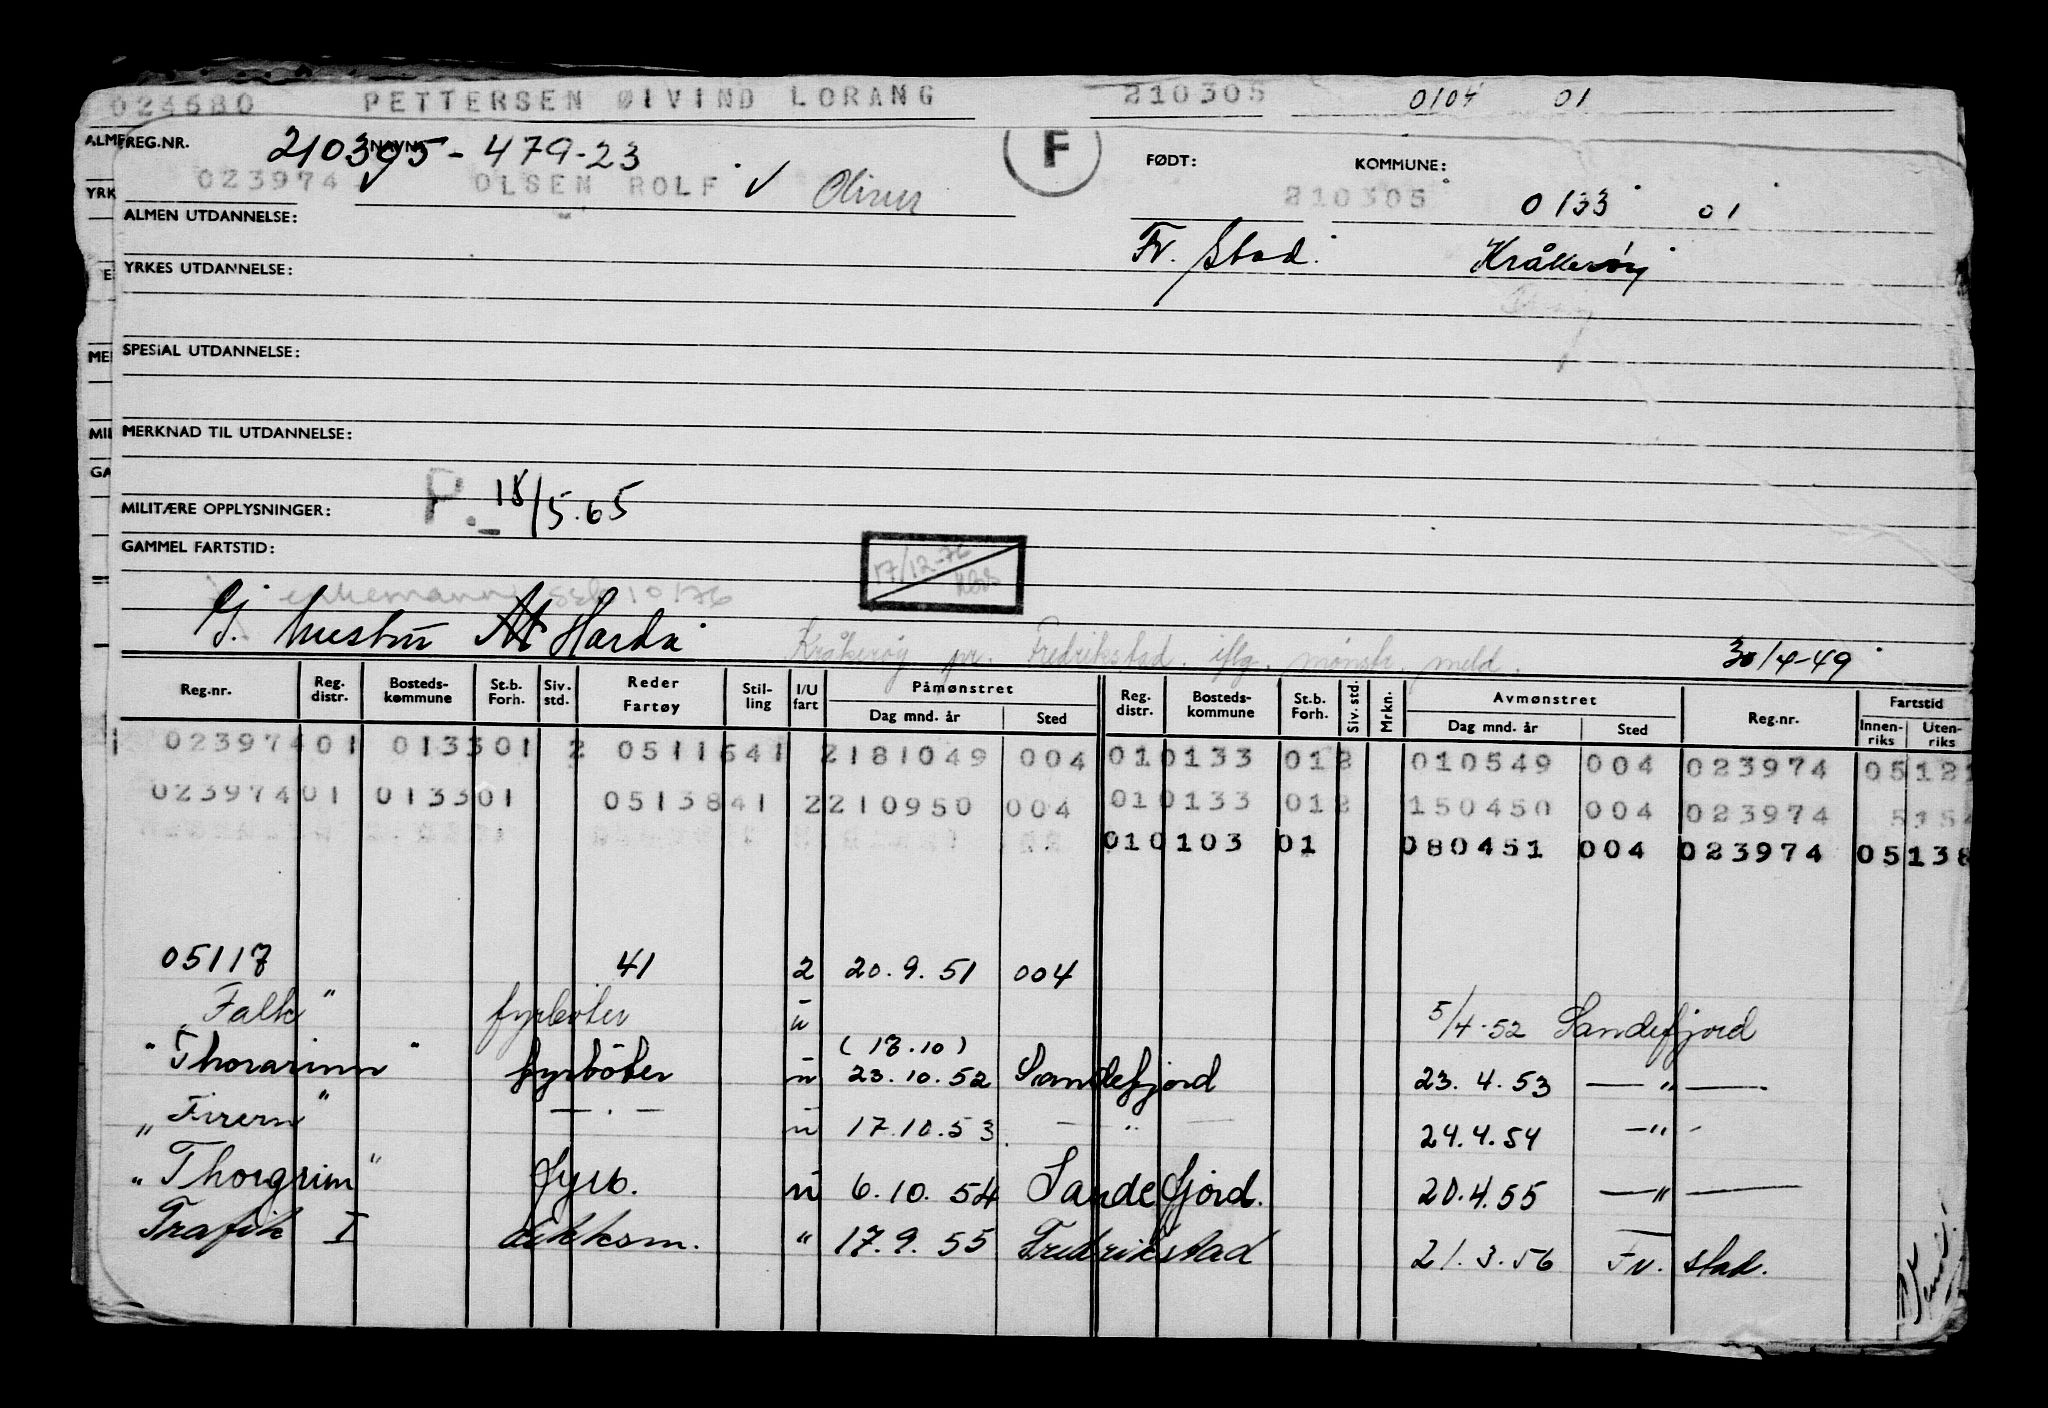 023680 PETTERSEN ØIVIND LORANG 210305 0104 01
ALM REG.NR. 210305-479-23 NAVN: F FØDT: KOMMUNE:
YRK 023974 ✓ OLSEN ROLF ✓ Oliver 210305 0133 01
ALMEN UTDANNELSE: Fr. Stad. Kråkerøy
YRKES UTDANNELSE:
MEI SPESIAL UTDANNELSE:
MIL MERKNAD TIL UTDANNELSE:
GA
MILITÆRE OPPLYSNINGER: P. 18/5.65
GAMMEL FARTSTID: 17/12-76
enkemann 10/76
G. Harda
Kråkerøy pr. Fredrikstad. iflg. mønstr. meld. 30/4-49
Reg.nr. Reg. distr. Bosteds- kommune St.b. Forh. Siv. std. Reder Fartøy Stil- ling I/U fart Påmønstret Dag mnd. år Sted Reg. distr. Bosteds- kommune St.b. Forh. Siv. std. Mrkn. Avmønstret Dag mnd. år Sted Reg.nr. Fartstid Innen- riks Uten- riks
1 02397401 013301 2 0511641 2181049 004 010133 012 010549 004 023974 05121
02397401 013301 0513841 2210950 004 010133 012 150450 004 023974 5154
010103 01 080451 004 023974 05138
05117 41 2 20.9.51 004
"Falk" fyrbøter u 5/4-52 Sandefjord
(13.10)
"Thorarinn" fyrbøter u 23.10.52 Sandefjord 23.4.53 — " —
"Firern" — . — u 17.10.53. — " — 24.4.54 — " —
"Thorgrim" fyrb. u 6.10.54 Sandefjord. 20.4.55 — " —
Trafik I dekksm. " 17.9.55 Fredrikstad 21.3.56 Fr. stad.